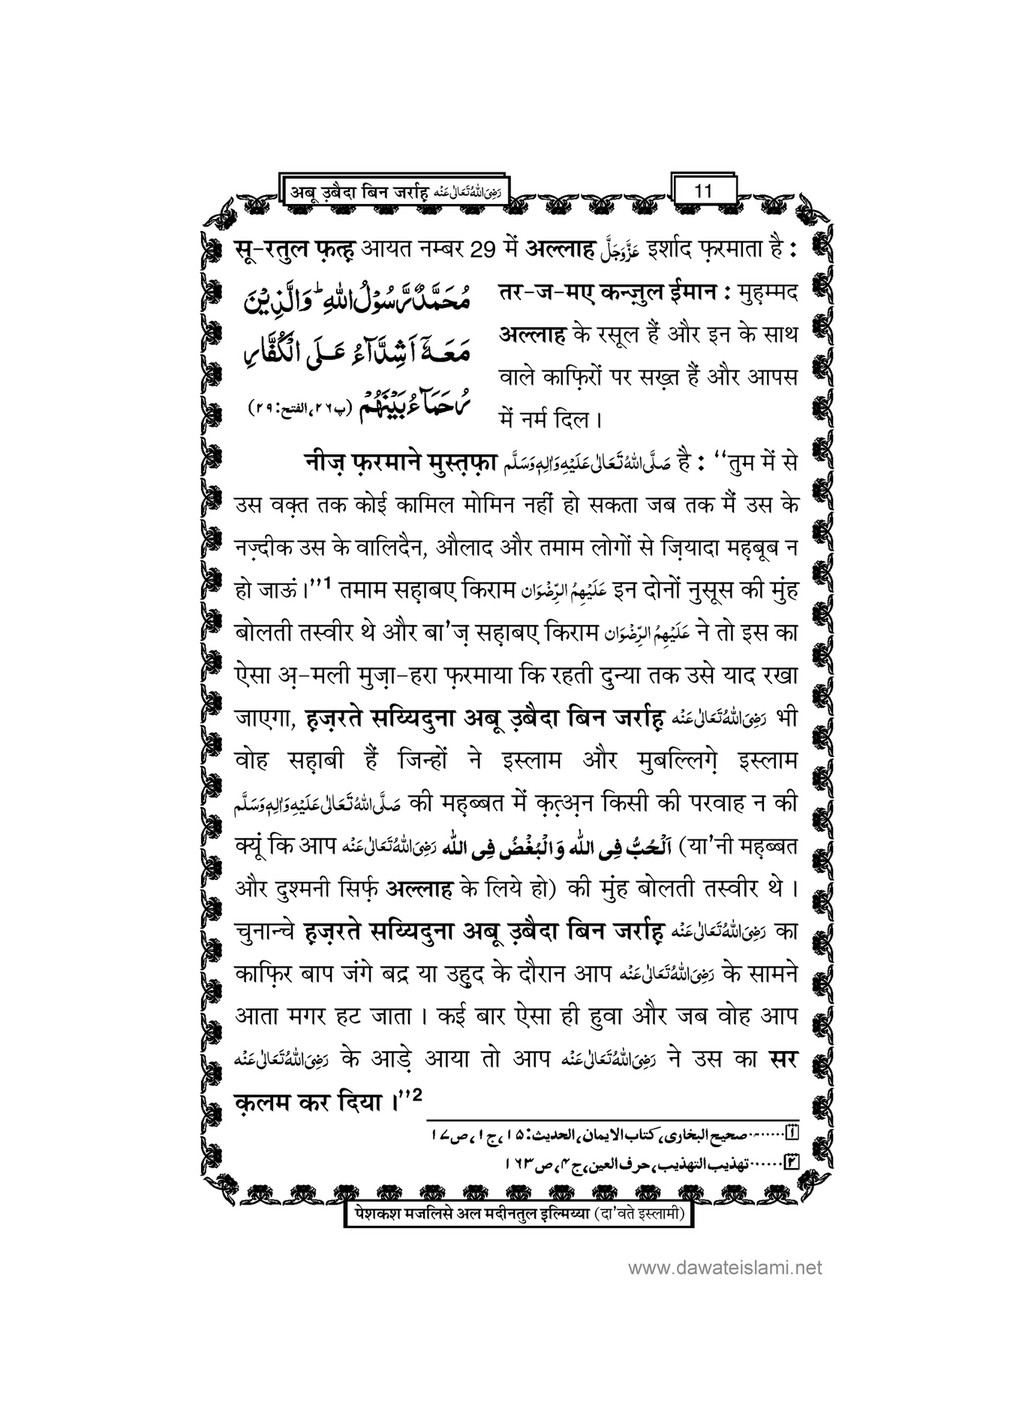 अबू उ़बैदा बिन जर्राह़ رَضِیَ اللّٰہُ تَعَالٰی عَنْہ
11
सू-रतुल फ़त्ह़ आयत नम्बर 29 में अल्लाह عَزَّوَجَلَّ इर्शाद फ़रमाता है :
مُحَمَّدٌ رَّسُوْلُ اللّٰهِ ؕ وَالَّذِیْنَ
مَعَهٗۤ اَشِدَّآءُ عَلَى الْكُفَّارِ
رُحَمَآءُ بَیْنَهُمْ (پ٢٦، الفتح: ٢٩)
तर-ज-मए कन्ज़ुल ईमान : मुह़म्मद
अल्लाह के रसूल हैं और इन के साथ
वाले काफ़िरों पर सख़्त हैं और आपस
में नर्म दिल ।
नीज़ फ़रमाने मुस्त़फ़ा صَلَّی اللّٰہُ تَعَالٰی عَلَیْہِ وَاٰلِہٖ وَسَلَّم है : ‘‘तुम में से
उस वक़्त तक कोई कामिल मोमिन नहीं हो सकता जब तक मैं उस के
नज़्दीक उस के वालिदैन, औलाद और तमाम लोगों से ज़ियादा मह़बूब न
हो जाऊं ।’’1 तमाम सह़ाबए किराम عَلَیْہِمُ الرِّضْوَان इन दोनों नुसूस की मुंह
बोलती तस्वीर थे और बा’ज़ सह़ाबए किराम عَلَیْہِمُ الرِّضْوَان ने तो इस का
ऐसा अ़-मली मुज़ा-हरा फ़रमाया कि रहती दुन्या तक उसे याद रखा
जाएगा, ह़ज़रते सय्यिदुना अबू उ़बैदा बिन जर्राह़ رَضِیَ اللّٰہُ تَعَالٰی عَنْہ भी
वोह सह़ाबी हैं जिन्हों ने इस्लाम और मुबल्लिग़े इस्लाम
صَلَّی اللّٰہُ تَعَالٰی عَلَیْہِ وَاٰلِہٖ وَسَلَّم की मह़ब्बत में क़त़्अ़न किसी की परवाह न की
क्यूं कि आप رَضِیَ اللّٰہُ تَعَالٰی عَنْہ اَلْحُبُّ فِی اللّٰہ وَ الْبُغْضُ فِی اللّٰہ (या’नी मह़ब्बत
और दुश्मनी सिर्फ़ अल्लाह के लिये हो) की मुंह बोलती तस्वीर थे ।
चुनान्चे ह़ज़रते सय्यिदुना अबू उ़बैदा बिन जर्राह़ رَضِیَ اللّٰہُ تَعَالٰی عَنْہ का
काफ़िर बाप जंगे बद्र या उहुद के दौरान आप رَضِیَ اللّٰہُ تَعَالٰی عَنْہ के सामने
आता मगर हट जाता । कई बार ऐसा ही हुवा और जब वोह आप
رَضِیَ اللّٰہُ تَعَالٰی عَنْہ के आड़े आया तो आप رَضِیَ اللّٰہُ تَعَالٰی عَنْہ ने उस का सर
क़लम कर दिया ।’’2
١……صحیح البخاری، کتاب الایمان، الحدیث: ١٥، ج١، ص١٧
٢……تھذیب التھذیب، حرف العین، ج٤، ص١٦٣
पेशकश मजलिसे अल मदीनतुल इल्मिय्या (दा’वते इस्लामी)
www.dawateislami.net